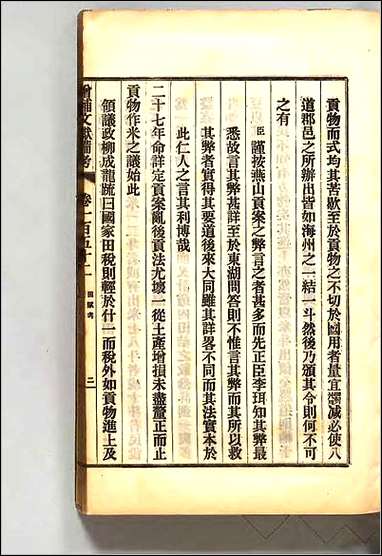 貢物而式均其苦歇至於貢物之不切於國用者量宜蠲減必使八
道郡邑之所辦出皆如海州之一結一斗然後乃頒其令則何不可
之有
臣謹按燕山貢案之弊言之者甚多而先正臣李珥知其弊最
悉故言其弊甚詳至於東湖問答則不惟言其弊而其所以救
其弊者實得其要道後來大同雖其詳畧不同而其法實本於
此仁人之言其利博哉
二十七年命詳定貢案亂後貢法尤壞一從土產增損未盡釐正而止
貢物作米之議始此
領議政柳成龍疏曰國家田稅則輕於什一而稅外如貢物進上及
增補文獻備考 卷一百五十二 田賦考 二